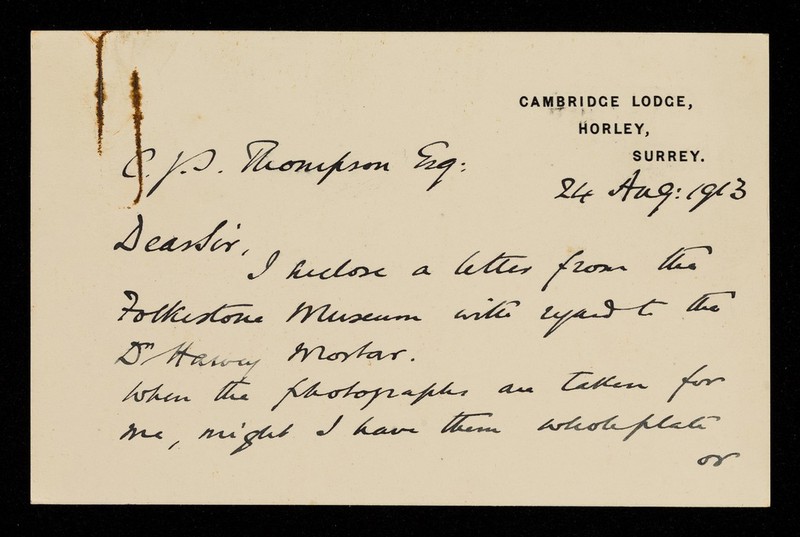 CAMBRIDGE LODGE,
HORLEY,
SURREY.
C. J. S. Thompson Esq:
24 Aug: 1913
Dear Sir,
I enclose a letter from the
Folkestone Museum with regard to the
Dr Harvey Mortar.
When the photographs are taken for
me, might I have them whole plate
or